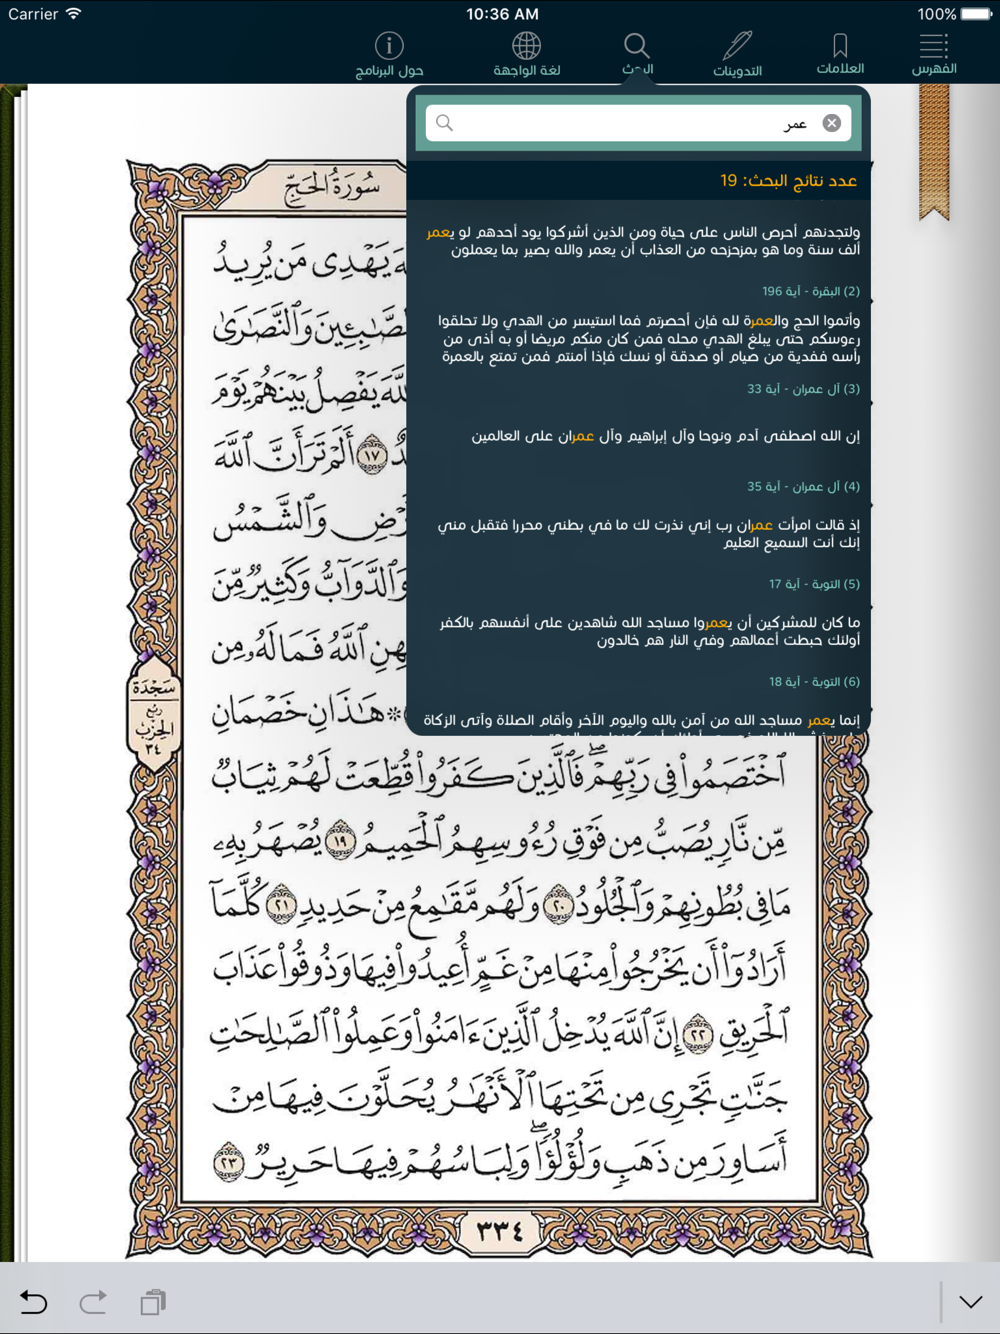 Carrier
10:36 AM
100%
الفهرس
العلامات
التدوينات
البحث
لغة الواجهة
حول البرنامج
عمر
عدد نتائج البحث: 19
ولتجدنهم أحرص الناس على حياة ومن الذين أشركوا يود أحدهم لو يعمر
ألف سنة وما هو بمزحزحه من العذاب أن يعمر والله بصير بما يعملون
(2) البقرة - آية 196
وأتموا الحج والعمرة لله فإن أحصرتم فما استيسر من الهدي ولا تحلقوا
رءوسكم حتى يبلغ الهدي محله فمن كان منكم مريضا أو به أذى من
رأسه ففدية من صيام أو صدقة أو نسك فإذا أمنتم فمن تمتع بالعمرة
(3) آل عمران - آية 33
إن الله اصطفى آدم ونوحا وآل إبراهيم وآل عمران على العالمين
(4) آل عمران - آية 35
إذ قالت امرأت عمران رب إني نذرت لك ما في بطني محررا فتقبل مني
إنك أنت السميع العليم
(5) التوبة - آية 17
ما كان للمشركين أن يعمروا مساجد الله شاهدين على أنفسهم بالكفر
أولئك حبطت أعمالهم وفي النار هم خالدون
(6) التوبة - آية 18
إنما يعمر مساجد الله من آمن بالله واليوم الآخر وأقام الصلاة وآتى الزكاة
سُورَةُ الحَجِّ
يَهْدِى مَن يُرِيدُ
وَٱلنَّصَٰرَىٰ
يَفْصِلُ بَيْنَهُمْ يَوْمَ
١٧ أَلَمْ تَرَ أَنَّ ٱللَّهَ
وَٱلشَّمْسُ
وَٱلدَّوَآبُّ وَكَثِيرٌ مِّنَ
ٱللَّهُ فَمَا لَهُۥ مِن
۞ هَٰذَانِ خَصْمَانِ
سَجْدَة
رُبُع
الحِزْب
٣٤
ٱخْتَصَمُوا۟ فِى رَبِّهِمْ ۖ فَٱلَّذِينَ كَفَرُوا۟ قُطِّعَتْ لَهُمْ ثِيَابٌ
مِّن نَّارٍ يُصَبُّ مِن فَوْقِ رُءُوسِهِمُ ٱلْحَمِيمُ ١٩ يُصْهَرُ بِهِۦ
مَا فِى بُطُونِهِمْ وَٱلْجُلُودُ ٢٠ وَلَهُم مَّقَٰمِعُ مِنْ حَدِيدٍ ٢١ كُلَّمَآ
أَرَادُوٓا۟ أَن يَخْرُجُوا۟ مِنْهَا مِنْ غَمٍّ أُعِيدُوا۟ فِيهَا وَذُوقُوا۟ عَذَابَ
ٱلْحَرِيقِ ٢٢ إِنَّ ٱللَّهَ يُدْخِلُ ٱلَّذِينَ ءَامَنُوا۟ وَعَمِلُوا۟ ٱلصَّٰلِحَٰتِ
جَنَّٰتٍ تَجْرِى مِن تَحْتِهَا ٱلْأَنْهَٰرُ يُحَلَّوْنَ فِيهَا مِنْ
أَسَاوِرَ مِن ذَهَبٍ وَلُؤْلُؤًا ۖ وَلِبَاسُهُمْ فِيهَا حَرِيرٌ ٢٣
٣٣٤